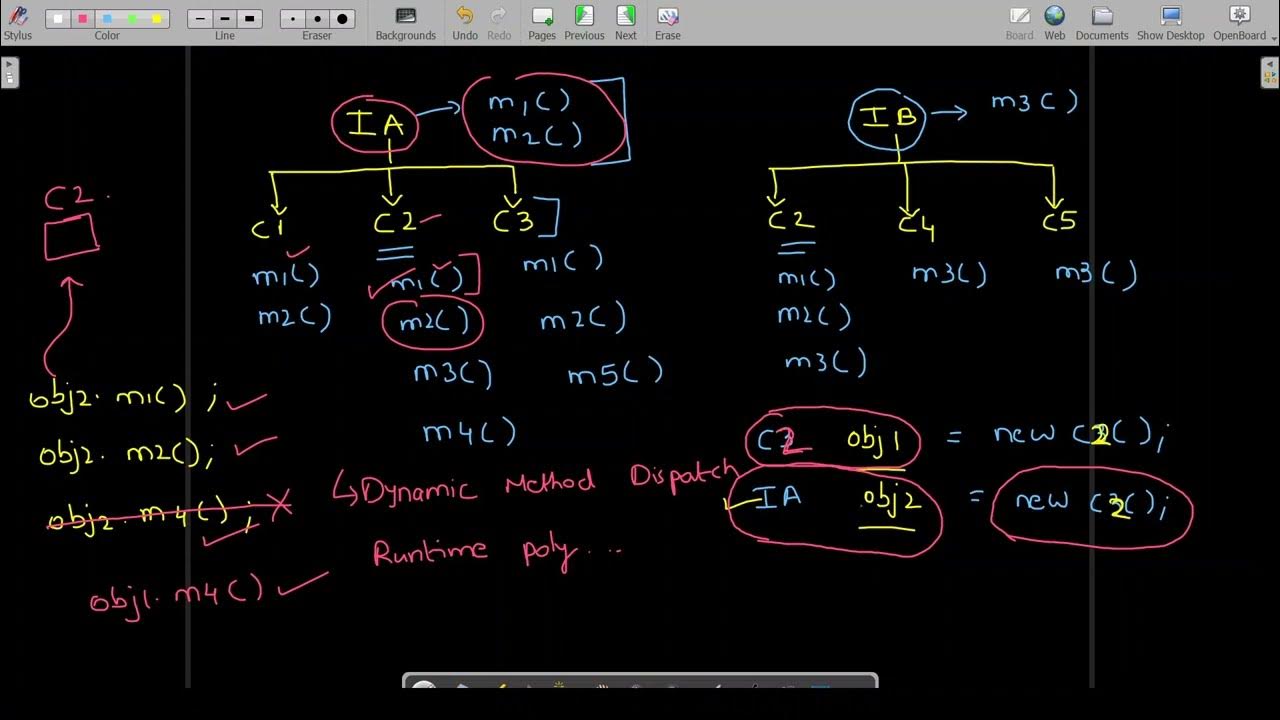 Stylus Color Line Eraser Backgrounds Undo Redo Pages Previous Next Erase Board Web Documents Show Desktop OpenBoard
IA → m1()
m2()
IB → m3()
C2.
C1 C2 C3
C2 C4 C5
m1() m1() m1()
m2() m2() m2()
m3() m5()
m4()
m1() m3() m3()
m2()
m3()
obj2. m1() ;
obj2. m2();
obj2. m4() ;
obj1. m4()
↳Dynamic Method Dispatch
Runtime poly...
C2 obj1 = new C2();
IA obj2 = new C2();